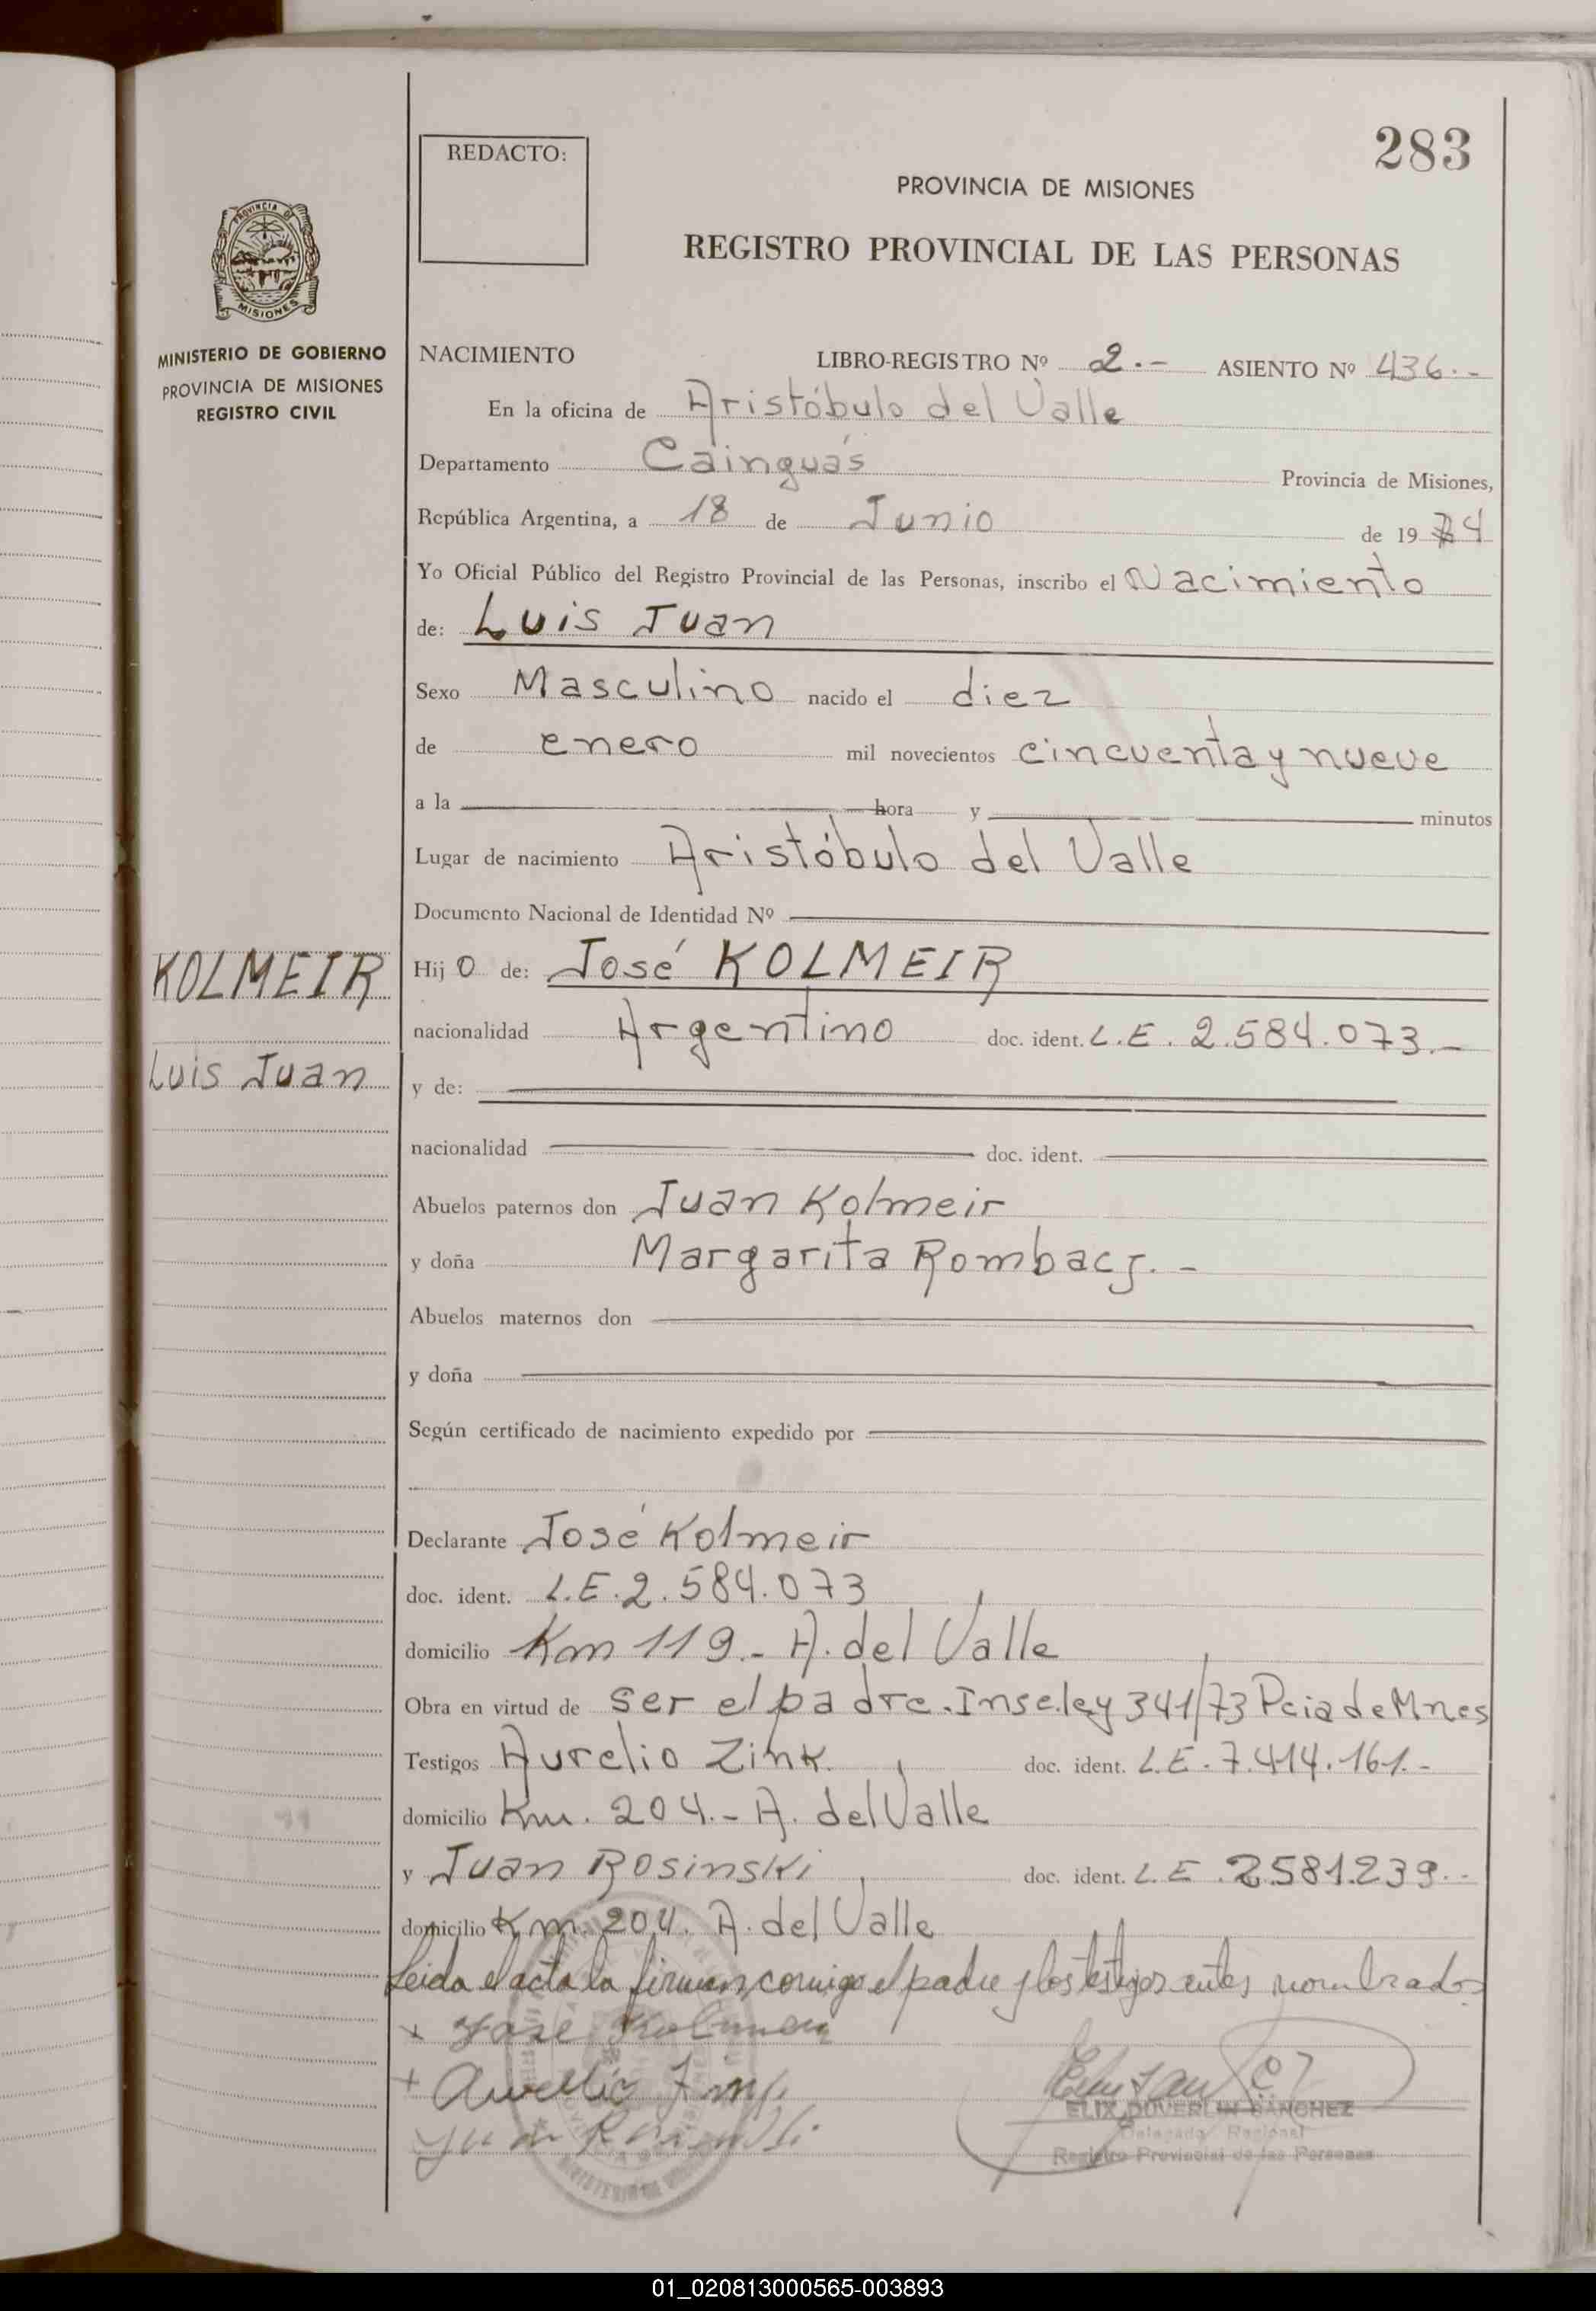 283
REDACTO:
PROVINCIA DE MISIONES
REGISTRO PROVINCIAL DE LAS PERSONAS
PROVINCIA DE
MISIONES
MINISTERIO DE GOBIERNO
PROVINCIA DE MISIONES
REGISTRO CIVIL
NACIMIENTO LIBRO-REGISTRO Nº 2.- ASIENTO Nº 436.-
En la oficina de Aristóbulo del Valle
Departamento Cainguás Provincia de Misiones,
República Argentina, a 18 de Junio de 1974
Yo Oficial Público del Registro Provincial de las Personas, inscribo el Nacimiento
de: Luis Juan
Sexo Masculino nacido el diez
de enero mil novecientos cincuenta y nueve
a la hora y minutos
Lugar de nacimiento Aristóbulo del Valle
Documento Nacional de Identidad Nº
KOLMEIR
Hijo de: José KOLMEIR
nacionalidad Argentino doc. ident. L.E. 2.584.073.-
Luis Juan
y de:
nacionalidad doc. ident.
Abuelos paternos don Juan Kolmeir
y doña Margarita Rombacj.-
Abuelos maternos don
y doña
Según certificado de nacimiento expedido por
Declarante José Kolmeir
doc. ident. L.E.2.584.073
domicilio Km 119.- A. del Valle
Obra en virtud de ser el padre.Inse.ley 341/73 Pcia de Mnes
Testigos Aurelio Zink. doc. ident. L.E. 7.414.161.-
domicilio Km. 204.- A. del Valle
y Juan Rosinski doc. ident. L.E. 2.581.239.-
domicilio Km. 204. A. del Valle
Leida el acta la firman conmigo el padre y los testigos antes nombrados
+ José Kolmeir
+ Aurelio Zink.
Juan Rosinski
ELIX DUVERLIN SANCHEZ
Delegado Regional
Registro Provincial de las Personas
01_020813000565-003893